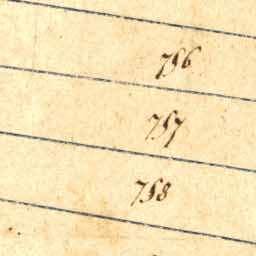 756
757
758